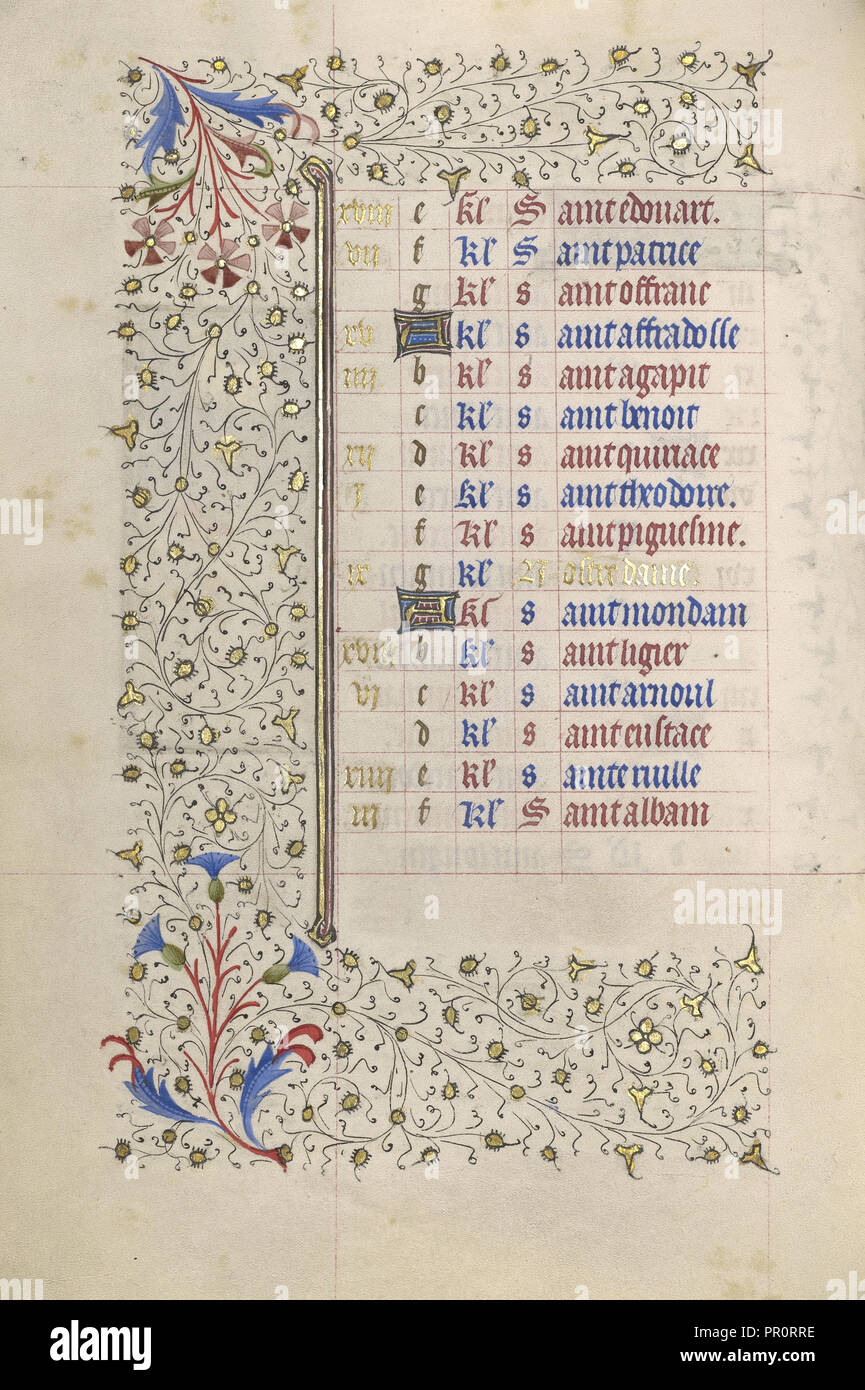 xviii e kl Saint edouart.
vii f kl Saint patrice
g kl saint offrane
xv A kl saint affradosse
iiii. b kl saint agapit
c kl saint benoit
xii d kl saint quiriace
i e kl saint theodoire.
f kl saint piguesme.
ix g kl Nostre dame.
A kl saint mondain
xvii b kl saint ligier
vi c kl saint arnoul
d kl saint eustace
xiiii e kl sainte riulle
iii f kl Saint albain
alamy
alamy stock photo
PR0RRE
www.alamy.com